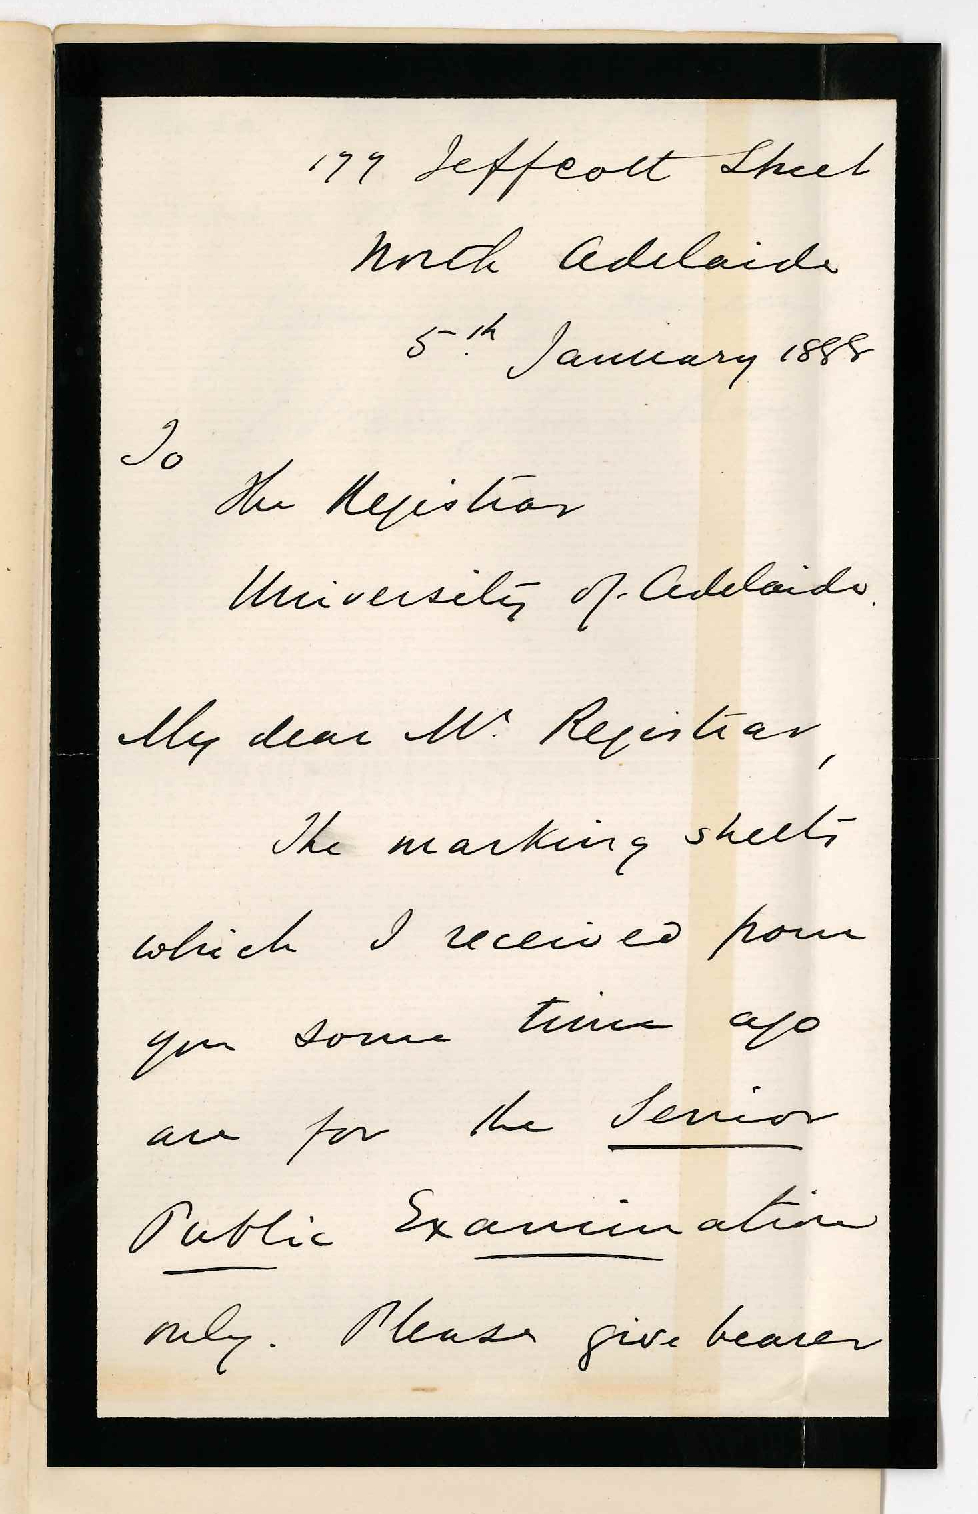 199 Jeffcott Street
North Adelaide
5th January 1888
To
The Registrar
University of Adelaide.
My dear Mr. Registrar,
The marking sheets
which I received from
you some time ago
are for the Senior
Public Examination
only. Please give bearer